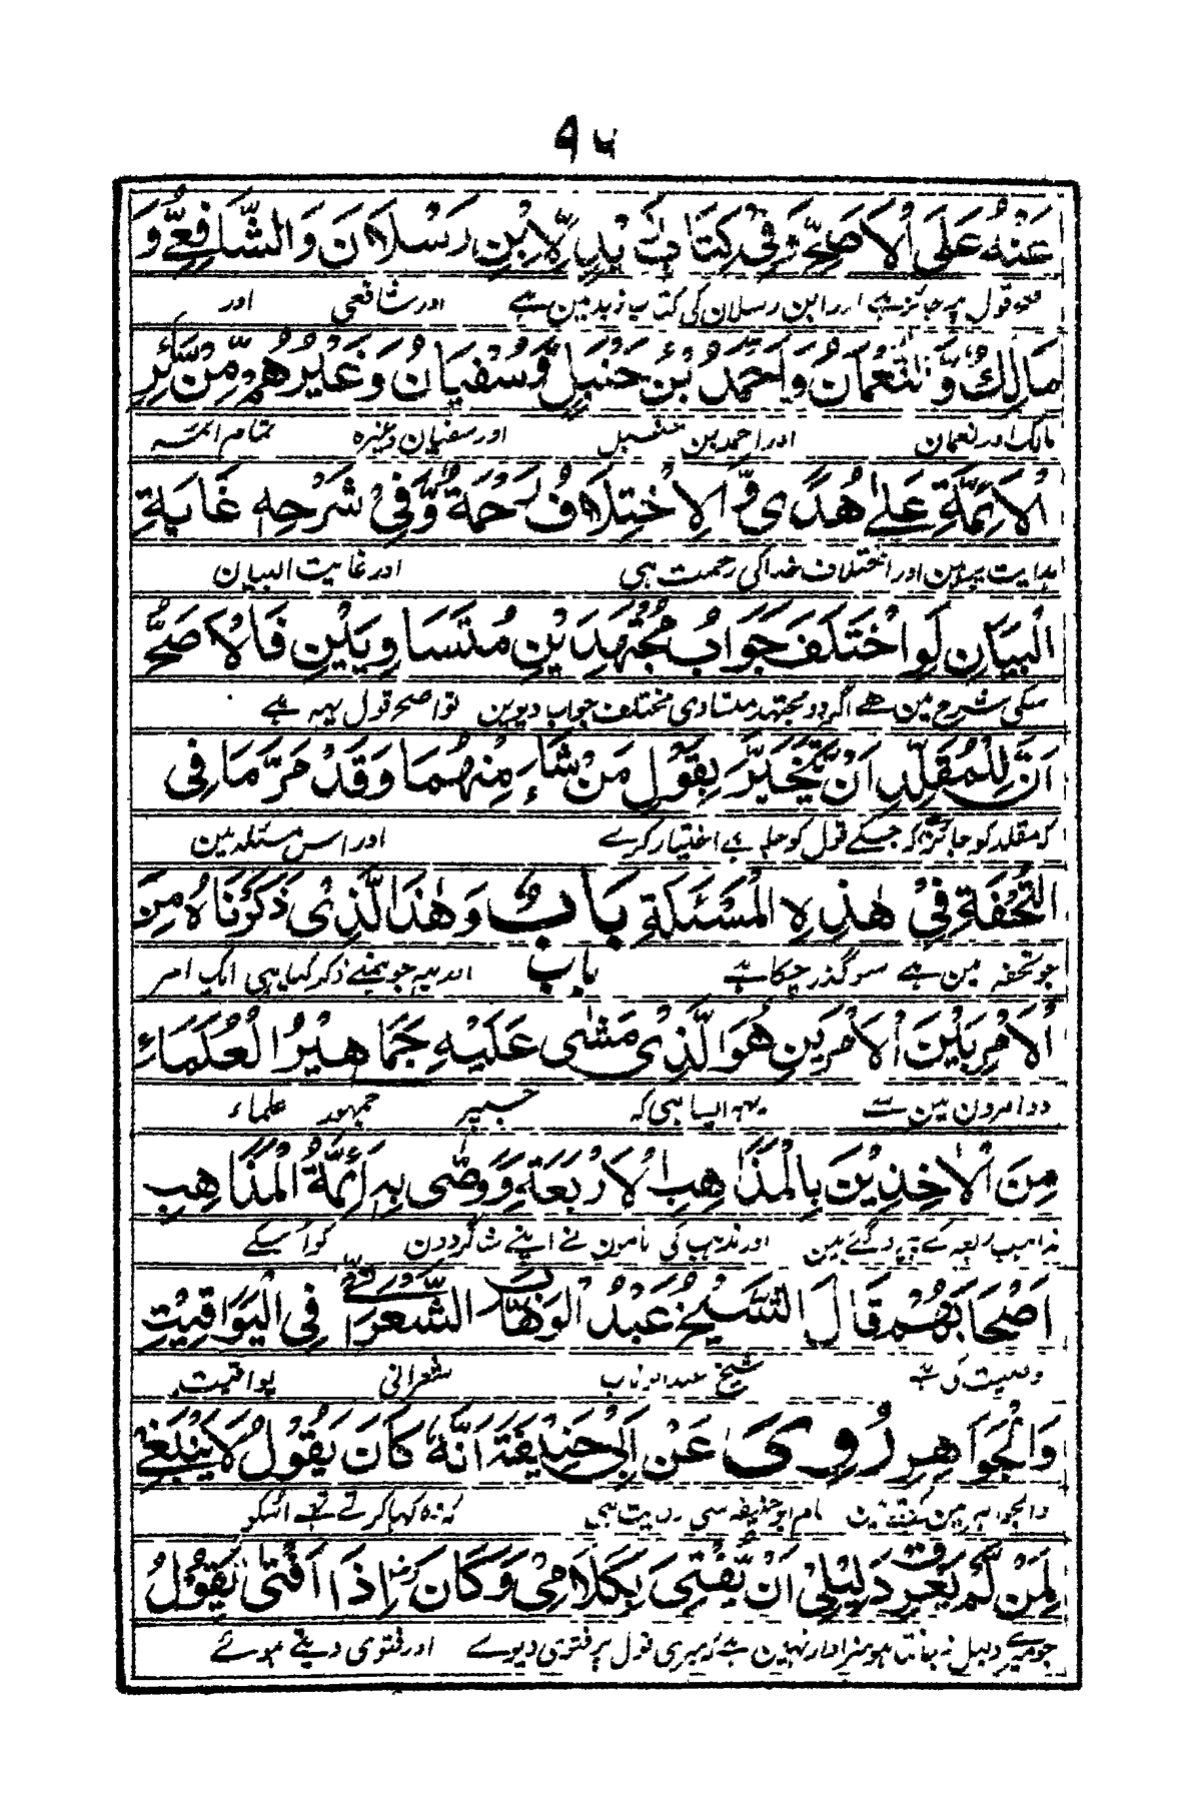 ۹۵
عَنْهُ عَلَى الْاَصَحِّ وَفِيْ كِتَابِ زُبَدٍ لِّابْنِ رَسْلَانَ وَالشَّافِعِيُّ وَ
قول پر جائز ہے اور ابن رسلان کی کتاب زبد مین ہے اور شافعی اور
مَالِكٌ وَّنُعْمَانُ وَاَحْمَدُ بْنُ حَنْبَلٍ وَّسُفْيَانُ وَغَيْرُهُمْ مِّنْ سَائِرِ
مالک اور نعمان اور احمد بن حنبل اور سفیان وغیرہ تمام ائمہ
الْاَئِمَّةِ عَلٰى هُدًى وَّالْاِخْتِلَافُ رَحْمَةٌ وَّفِيْ شَرْحِهٖ غَايَةِ
ہدایت پر ہین اور اختلاف خدا کی رحمت ہی اور غایت البیان
الْبَيَانِ لَوِ اخْتَلَفَ جَوَابُ مُجْتَهِدَيْنِ مُتَسَاوِيَيْنِ فَالْاَصَحُّ
سکی شرح مین ہے اگر دو مجتہد متساوی مختلف جواب دیوین تو اصح قول یہہ ہے
اَنَّ لِلْمُقَلِّدِ اَنْ يَّتَخَيَّرَ بِقَوْلِ مَنْ شَاءَ مِنْهُمَا وَقَدْ مَرَّ مَا فِى
کہ مقلد کو جائز ہے کہ جسکے قول کو چاہے اختیار کرے اور اس مسئلہ مین
التُّحْفَةِ فِيْ هٰذِهِ الْمَسْئَلَةِ بَابٌ وَهٰذَا الَّذِىْ ذَكَرْنَاهُ مِنَ
جو تحفہ مین ہے سو گذر چکا ہے باب اور یہہ جو ہمنے ذکر کیا ہی ایک امر
الْاَمْرَيْنِ الْاَمْرَيْنِ هُوَ الَّذِىْ مَشٰى عَلَيْهِ جَمَاهِيْرُ الْعُلَمَاءِ
دو امرون مین سے یہہ ایسا ہی کہ جسپر جمہور علماء
مِنَ الْاٰخِذِيْنَ بِالْمَذَاهِبِ الْاَرْبَعَةِ وَوَصّٰى بِهٖ اَئِمَّةُ الْمَذَاهِبِ
مذاہب اربعہ کے پیرو گئے ہین اور مذہب کی امامون نے اپنے شاگردون کو اسکے
اَصْحَابَهُمْ قَالَ الشَّيْخُ عَبْدُ الْوَهَّابِ الشَّعْرَانِيُّ فِى الْيَوَاقِيْتِ
وصیت کی ہے شیخ عبدالوہاب شعرانی یواقیت
وَالْجَوَاهِرِ رُوِىَ عَنْ اَبِىْ حَنِيْفَةَ اَنَّهٗ كَانَ يَقُوْلُ لَا يَنْبَغِىْ
والجواہر مین امام ابو حنیفہ سی روایت ہی کہ وہ کہا کرتے تھے اسکو
لِمَنْ لَّمْ يَعْرِفْ دَلِيْلِىْ اَنْ يُّفْتِىَ بِكَلَامِىْ وَكَانَ اِذَا اَفْتٰى يَقُوْلُ
جو میرے دلیل نہ جانتا ہو سزاوار نہین ہے کہ میری قول پر فتوی دیوے اور فتوی دیتے ہوئے